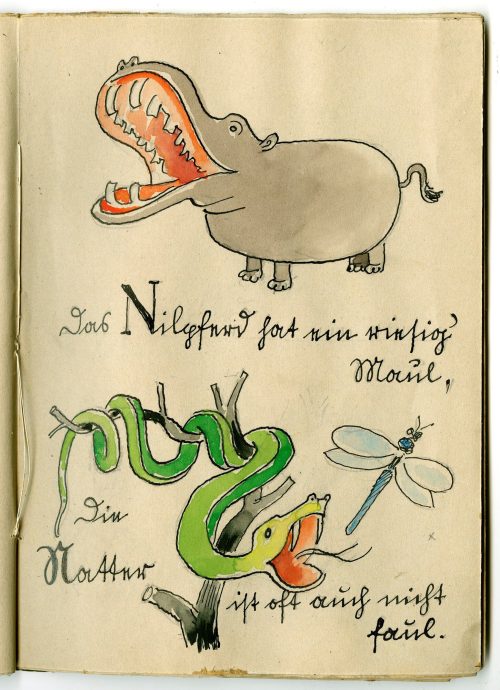 Das Nilpferd hat ein riesig'
Maul,
Die
Natter
ist oft auch nicht
faul.